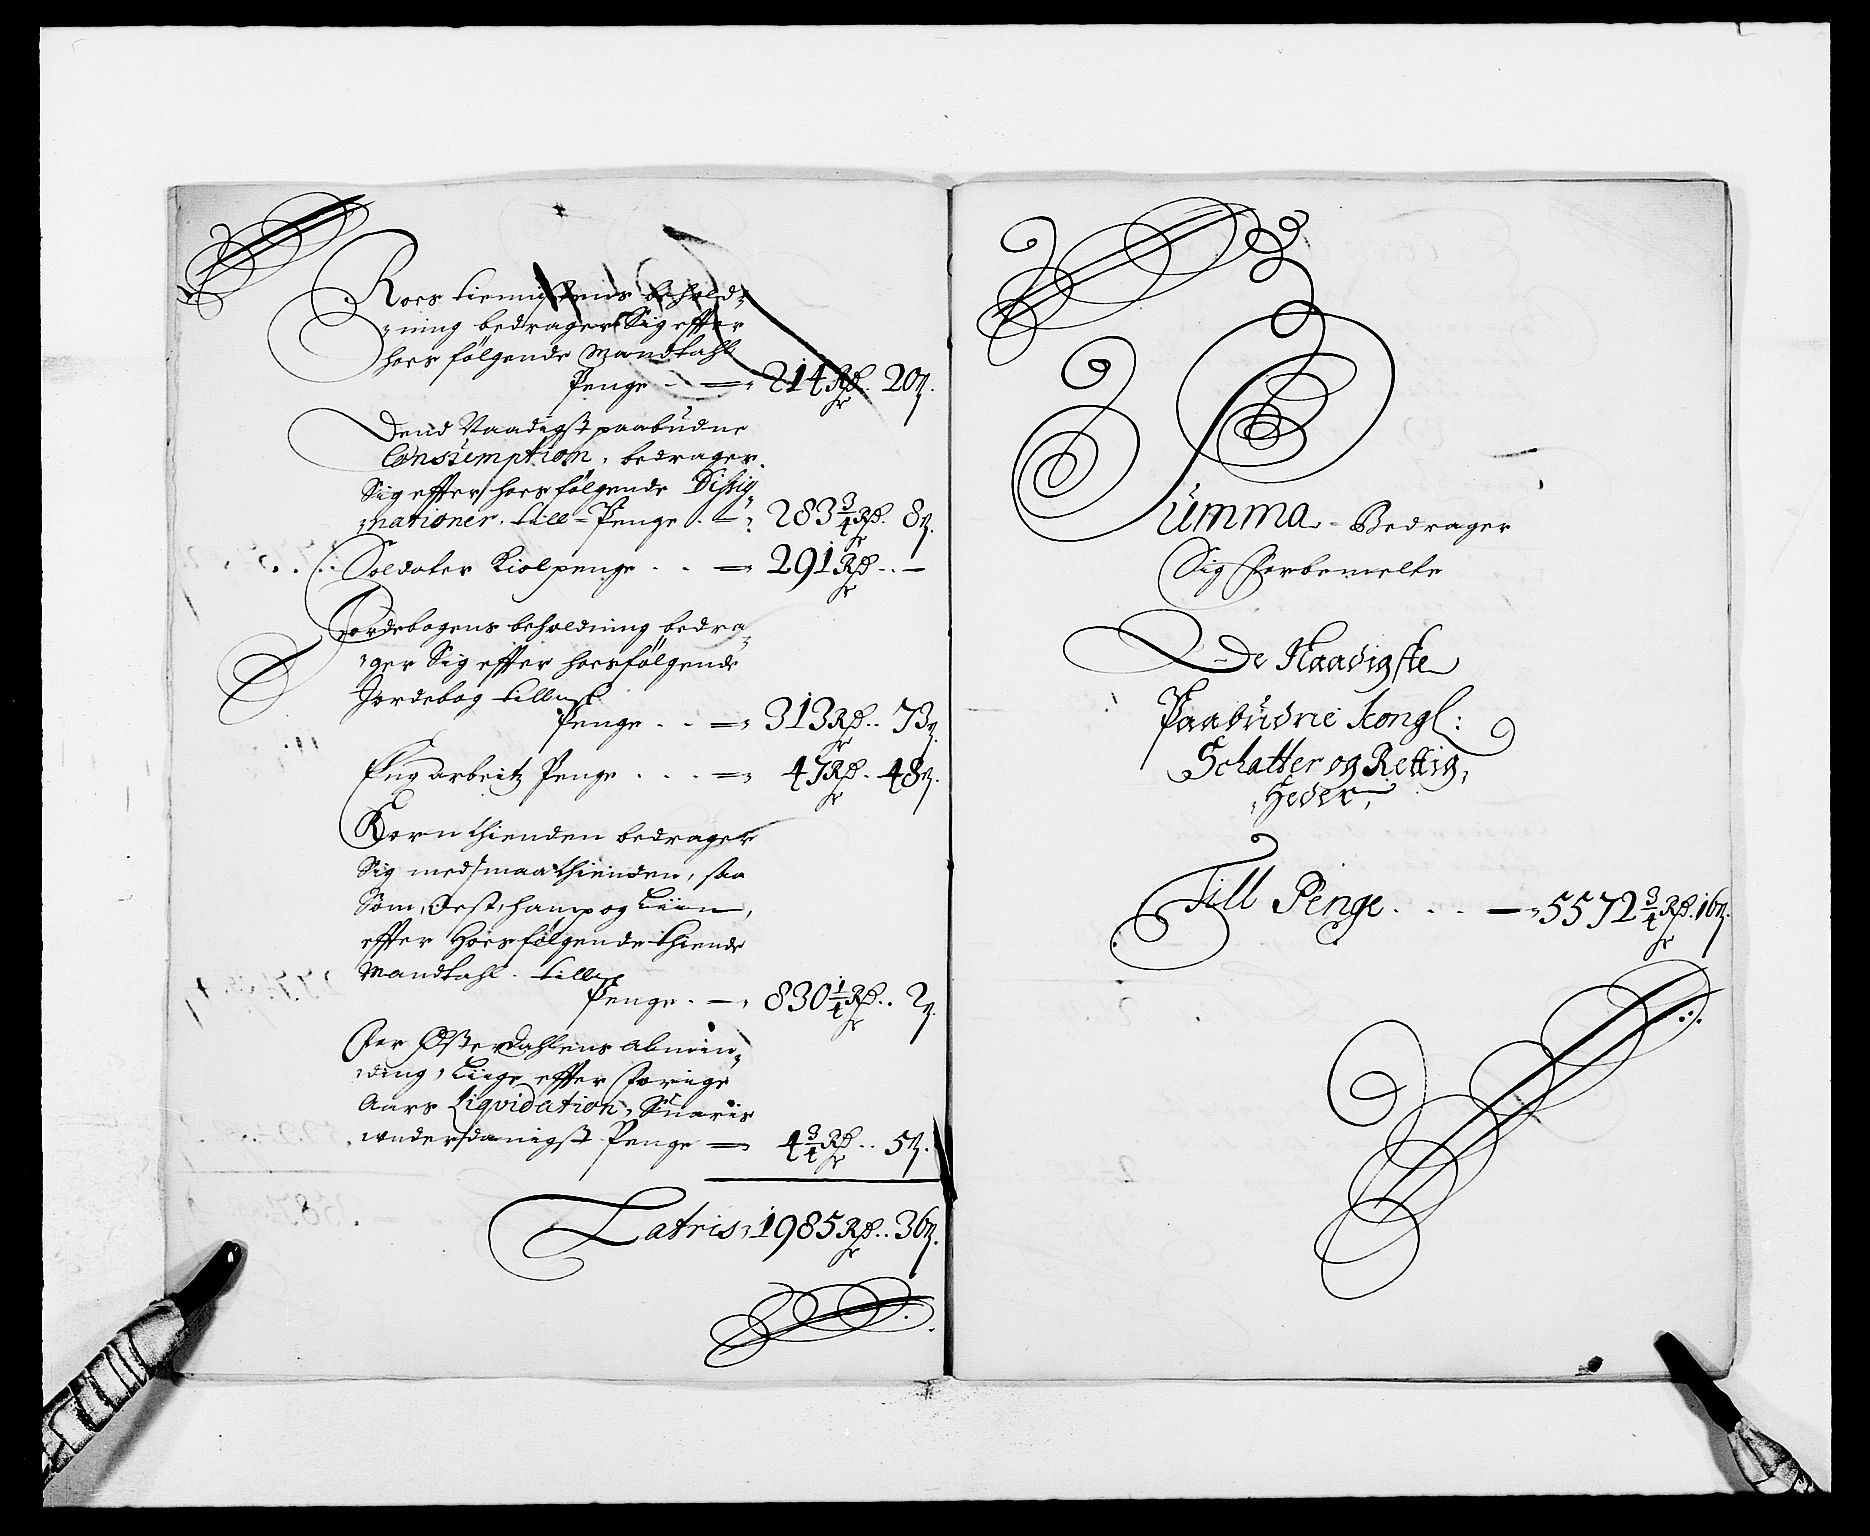 Roes tiennistens behold-
ning bedrager Sig effter
hoes følgende Mandtahl
Penge - - = 214 Rdr. 20 ß.
Dend Naadigst paabudne
Consumption, bedrager
Sig effter hoes følgende Dissig-
nationer. till - Penge . - 283¾ Rdr. 8 ß.
Soldater Kiolpenge . . = 291 Rdr . . -
Jordebogens beholdning bedra-
ger Sig effter hoesfølgende
Jordebog till
Penge . . = 313 Rdr . . 73 ß.
Eng arbeitz Penge . . . = 47 Rdr . 48 ß.
Korn thienden bedrager
Sig med smaa thienden, saa
Som, Oest, hamp og Liin,
effter Hoesfølgende thiende
Mandtahl. till
Penge . - 830¼ Rdr . . 2 ß.
For Østerdahlens Almin-
ding, Liige effter forrige
Aars Liqvidation, Suaris
underdanigst Penge = 4¾ Rdr . . 5 ß.
Latris, 1985 Rdr . . 36 ß.
Summa - Bedrager
Sig forbemelte
De Naadigste
Paabudne kongl:
Schatter og Rettig,
Heder,
Till Penge . . . - 5572¾ Rdr. 16 ß.